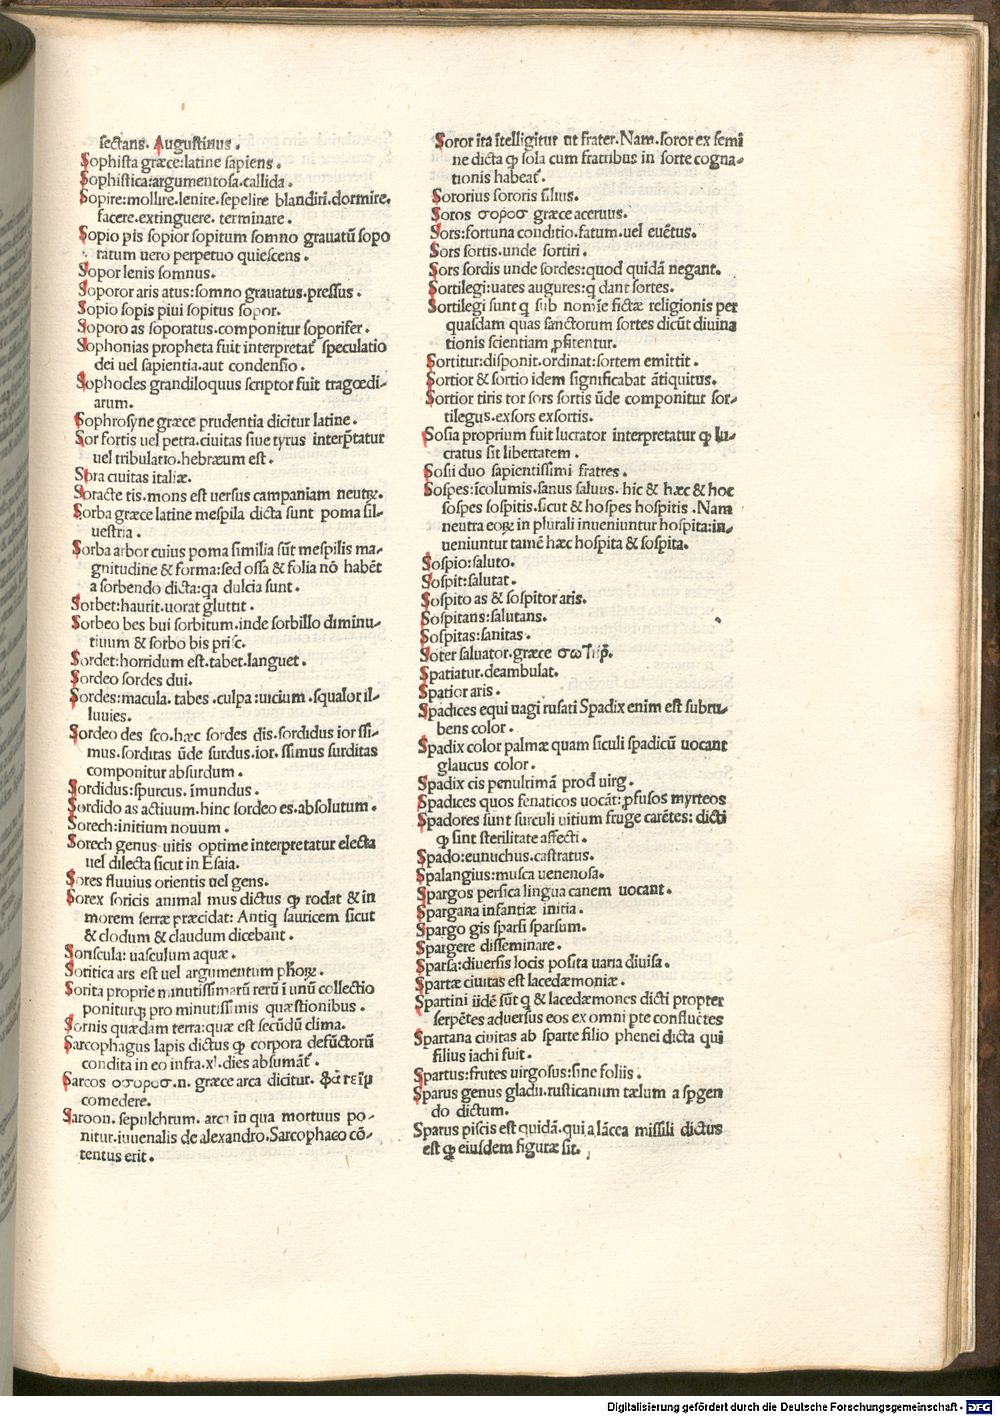 sectans. Augustinus.
Sophista græce:latine sapiens.
Sophistica:argumentosa.callida.
Sopire:mollire.lenire.sepelire blandiri.dormire.
facere.extinguere. terminare.
Sopio pis sopior sopitum somno grauatū sopo
ratum uero perpetuo quiescens.
Sopor lenis somnus.
Soporor aris atus:somno grauatus.pressus.
Sopio sopis piui sopitus sopor.
Soporo as soporatus.componitur soporifer.
Sophonias propheta fuit interpretat̄ speculatio
dei uel sapientia.aut condensio.
Sophocles grandiloquus scriptor fuit tragœdi-
arum.
Sophrosyne græce prudentia dicitur latine.
Sor fortis uel petra.ciuitas siue tyrus interp̄tatur
uel tribulatio.hebræum est.
Sora ciuitas italiæ.
Soracte tis.mons est uersus campaniam neutꝝ.
Sorba græce latine mespila dicta sunt poma sil-
uestria.
Sorba arbor cuius poma similia sūt mespilis ma-
gnitudine & forma:sed ossa & folia nō habēt
a sorbendo dicta:qa dulcia sunt.
Sorbet:haurit.uorat gluttit.
Sorbeo bes bui sorbitum.inde sorbillo diminu-
tiuum & sorbo bis prisc.
Sordet:horridum est.tabet.languet.
Sordeo sordes dui.
Sordes:macula.tabes.culpa:uicium.squalor il-
luuies.
Sordeo des sco.hæc sordes dis.sordidus ior ssi-
mus.sorditas ūde surdus.ior.ssimus surditas
componitur absurdum.
Sordidus:spurcus.īmundus.
Sordido as actiuum.hinc sordeo es.absolutum.
Sorech:initium nouum.
Sorech genus uitis optime interpretatur electa
uel dilecta sicut in Esaia.
Sores fluuius orientis uel gens.
Sorex soricis animal mus dictus ꝙ rodat & in
morem serræ præcidat: Antiq sauricem sicut
& clodum & claudum dicebant.
Soriscula:uasculum aquæ.
Soritica ars est uel argumentum phōꝝ.
Sorita proprie minutissimarū rerū ī unū collectio
poniturꝗ pro minutissimis quæstionibus.
Sornis quædam terra:quæ est secūdū clima.
Sarcophagus lapis dictus ꝙ corpora defūctorū
condita in eo infra.xl.dies absumāt̄.
Sarcos οσοροσ.n. græce arca dicitur.
comedere.
Saroon. sepulchrum. arca in qua mortuus po-
nitur.iuuenalis de alexandro.Sarcophaeo cō-
tentus erit.
Soror ita ītelligitur ut frater.Nam.soror ex semi
ne dicta ꝙ sola cum fratribus in sorte cogna-
tionis habeat̄.
Sororius sororis filius.
Soros σοροσ græce aceruus.
Sors:fortuna conditio.fatum.uel euētus.
Sors sortis.unde sortiri.
Sors sordis unde sordes:quod quidā negant.
Sortilegi:uates augures:q dant sortes.
Sortilegi sunt q sub nomīe fictæ religionis per
quasdam quas sanctorum sortes dicūt diuina
tionis scientiam ꝓfitentur.
Sortitur:disponit.ordinat:sortem emittit.
Sortior & sortio idem significabat ātiquitus.
Sortior tiris tor sors sortis ūde componitur sor-
tilegus.exsors exsortis.
Sosia proprium fuit lucrator interpretatur ꝙ lu-
cratus sit libertatem.
Sosii duo sapientissimi fratres.
Sospes:īcolumis.sanus saluus. hic & hæc & hoc
sospes sospitis.sicut & hospes hospitis.Nam
neutra eoꝝ in plurali inueniuntur hospita:in-
ueniuntur tamē hæc hospita & sospita.
Sospio:saluto.
Sospit:salutat.
Sospito as & sospitor aris.
Sospitans:salutans.
Sospitas:sanitas.
Soter saluator.græce
Spatiatur.deambulat.
Spatior aris.
Spadices equi uagi rusati Spadix enim est subru-
bens color.
Spadix color palmæ quam siculi spadicū uocant
glaucus color.
Spadix cis penultimā prod̄ uirg.
Spadices quos fenaticos uocāt:ꝓfusos myrteos
Spadores sunt surculi uitium fruge carētes: dicti
ꝙ sint sterilitate affecti.
Spado:eunuchus.castratus.
Spalangius:musca uenenosa.
Spargos persica lingua canem uocant.
Spargana infantiæ initia.
Spargo gis sparsi sparsum.
Spargere disseminare.
Sparsa:diuersis locis posita uaria diuisa.
Spartæ ciuitas est lacedæmoniæ.
Spartini iidē sūt q & lacedæmones dicti propter
serpētes aduersus eos ex omni pte confluētes
Spartana ciuitas ab sparte filio phenei dicta qui
filius iachi fuit.
Spartus:frutes uirgosus:sine foliis.
Sparus genus gladii.rusticanum tælum a spgen
do dictum.
Sparus piscis est quidā.qui a lācea missili dictus
est ꝙ eiusdem figuræ sit.
Digitalisierung gefördert durch die Deutsche Forschungsgemeinschaft - DFG